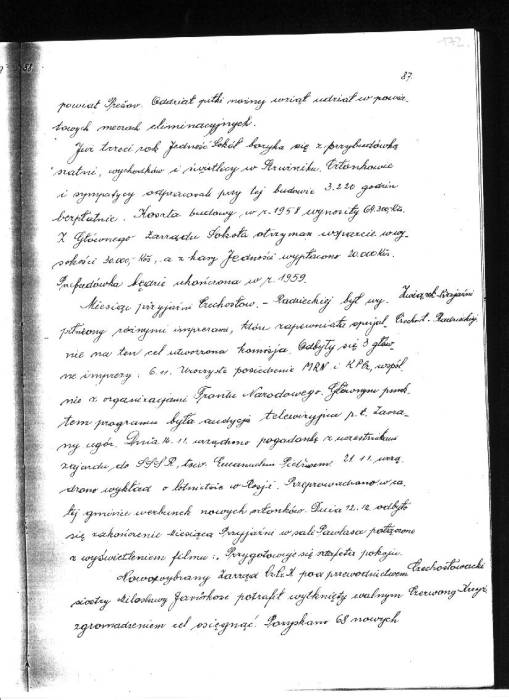 172.
87.
powiat Prešov. Oddział piłki nożnej wziął udział w powia-
towych meczach eliminacyjnych.
Już trzeci rok Jedność Sokół boryka się z przybudówką
szatni, wychodków i świetlicy w Członkowie
i sympatycy odpracowali przy tej budowie 3.220 godzin
bezpłatnie. Koszta budowy w r. 1958 wynosiły Kčs.
Z Głównego Zarządu Sokoła otrzyman wsparcie w wy-
sokości 30.000,- Kčs, a z kasy Jedności wypłacono 20.000 Kčs.
Przybudówka będzie ukończona w r. 1959.
Miesiąc przyjaźni Czechosłow. - Radzieckiej był wy-
Związek Przyjaźni
pełniony różnymi imprezami, które zapewniała specjal-
Czechosł. Radzieckiej
nie na ten cel utworzona komisja. Odbyły się 3 głów-
ne imprezy. 6. 11. Uroczyste posiedzenie MRN i KPCz, wspól-
nie z organizacjami Frontu Narodowego. Głównym punk-
tem programu była audycja telewizyjna p. t. Zaora-
ny ugór. Dnia 16. 11. urządzono pogadankę z uczestnikami
zajazdu do SSSR, tow. 28. 11. urzą-
dzono wykład o lotnictwie w Rosji. Przeprowadzono w ca-
łej gminie werbunek nowych członków. Dnia 12. 12. odbyło
się zakończenie Miesiąca Przyjaźni w sali Pawlasa połączone
z wyświetleniem filmu: Przygotowuje się sztafeta pokoju.
Nowowybrany Zarząd ČsČK pod przewodnictwem
Czechosłowacki
siostry Miłosławy potrafił wytknięty walnym
Czerwony Krzyż
zgromadzeniem cel osiągnąć. Pozyskano 68 nowych